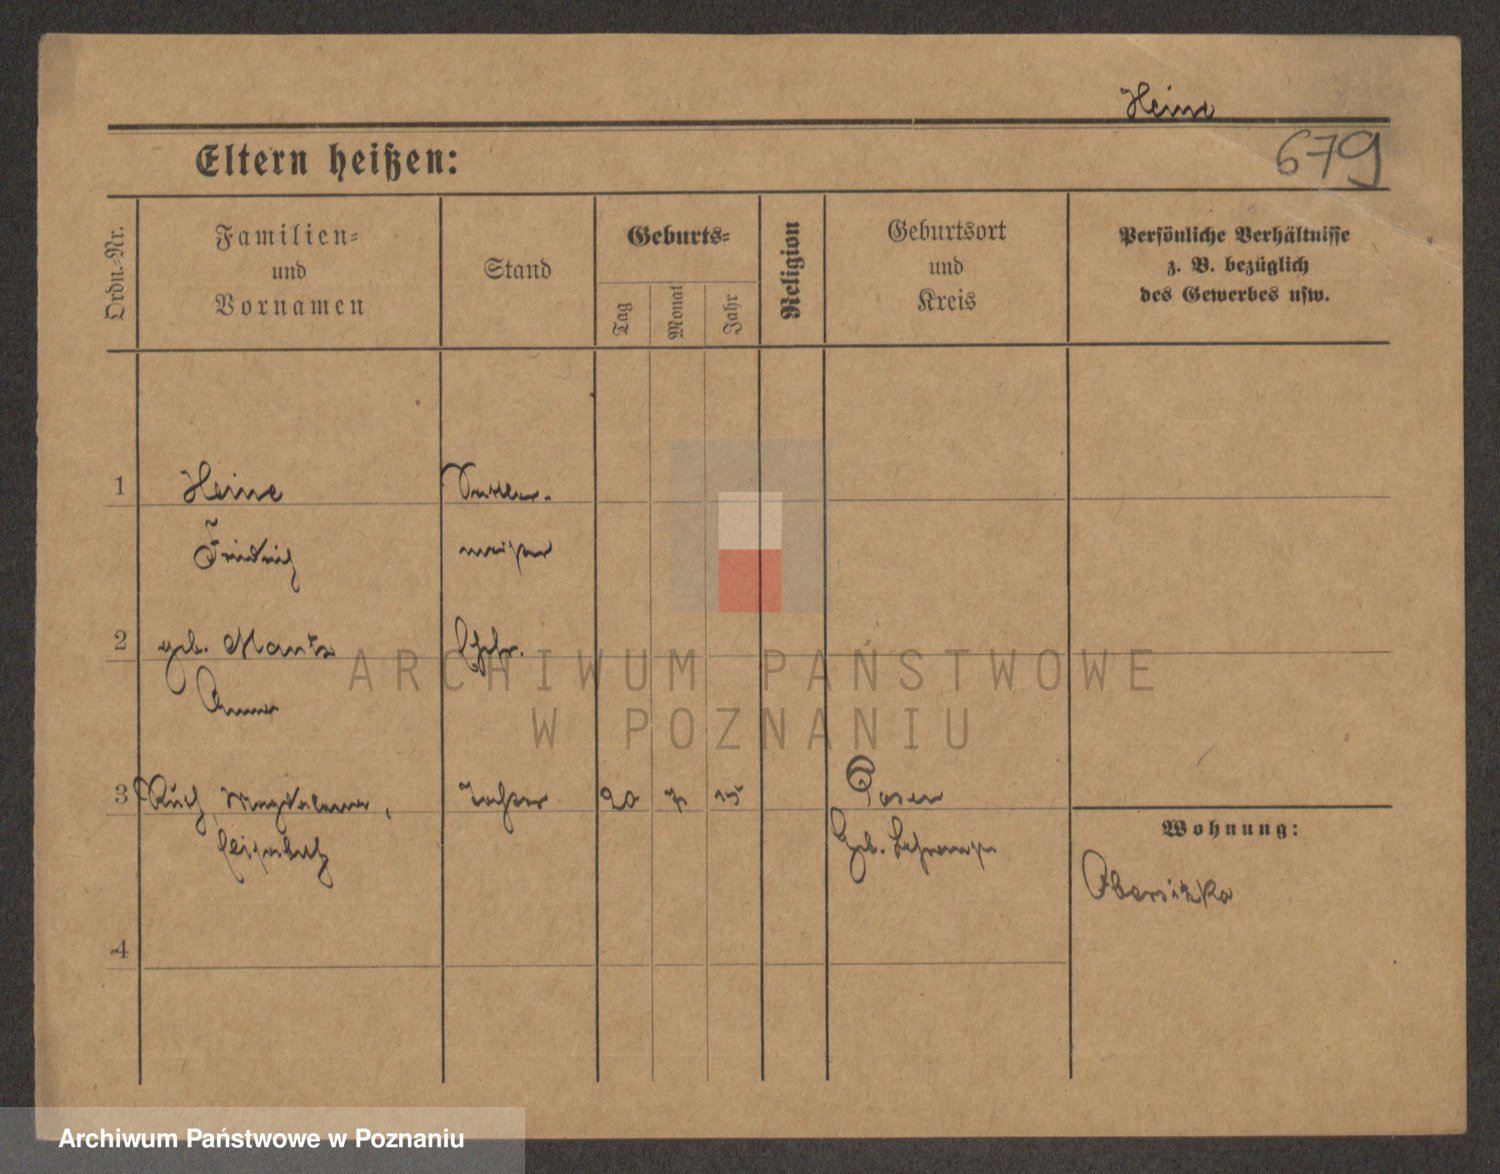 Heine
Eltern heißen:
679
Ordn.-Nr.
Familien-
und
Vornamen
Stand
Geburts-
Tag
Monat
Jahr
Religion
Geburtsort
und
Kreis
Persönliche Verhältnisse
z. B. bezüglich
des Gewerbes usw.
1
Heine
Sattler-
Friedrich
meister
2
geb.
Ehefr.
Anna
3
Ruth, Magdalena,
Tochter
20
7
15
Posen
Elisabeth
Geb.
Wohnung:
Obersitzko
4
ARCHIWUM PAŃSTWOWE
W POZNANIU
Archiwum Państwowe w Poznaniu